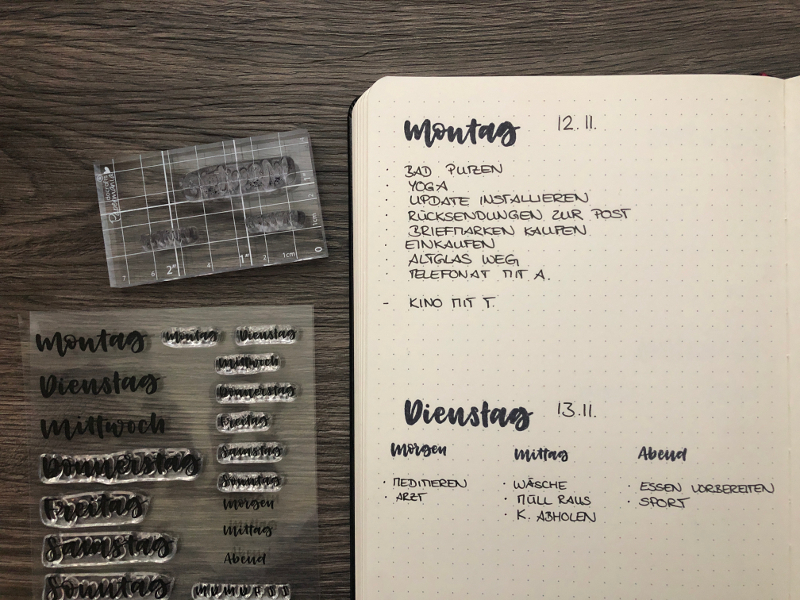 Montag 12.11.
· BAD PUTZEN
· YOGA
· UPDATE INSTALLIEREN
· RÜCKSENDUNGEN ZUR POST
· BRIEFMARKEN KAUFEN
· EINKAUFEN
· ALTGLAS WEG
· TELEFONAT MIT A.
- KINO MIT T.
Dienstag 13.11.
Morgen Mittag Abend
· MEDITIEREN · WÄSCHE · ESSEN VORBEREITEN
· ARZT · MÜLL RAUS · SPORT
· K. ABHOLEN
7 6 2" 4 1" 2 1cm 0
1cm
1"
Montag Montag Dienstag
Mittwoch
Dienstag Donnerstag
Mittwoch Freitag
Donnerstag Samstag
Sonntag
Freitag Morgen
Mittag
Samstag Abend
Sonntag